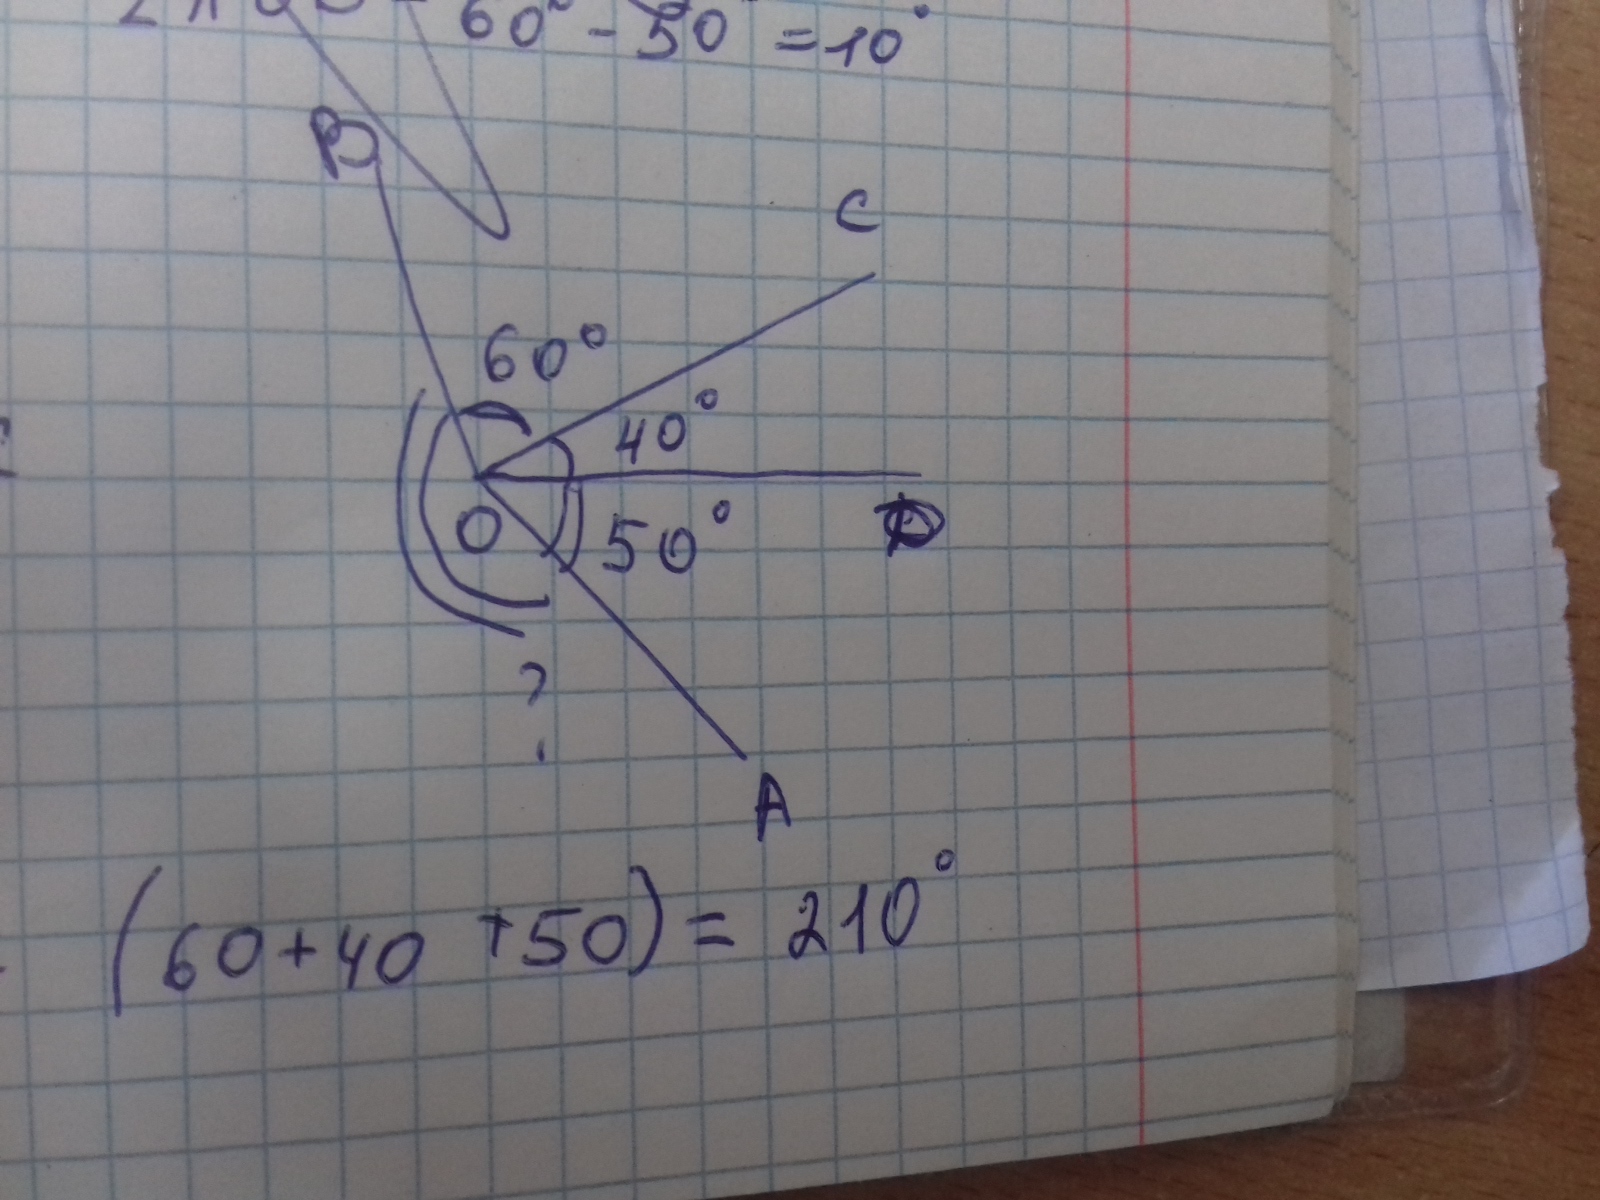 60° - 50° = 10°
B
C
60°
40°
O
50°
D
?
A
(60+40 +50) = 210°